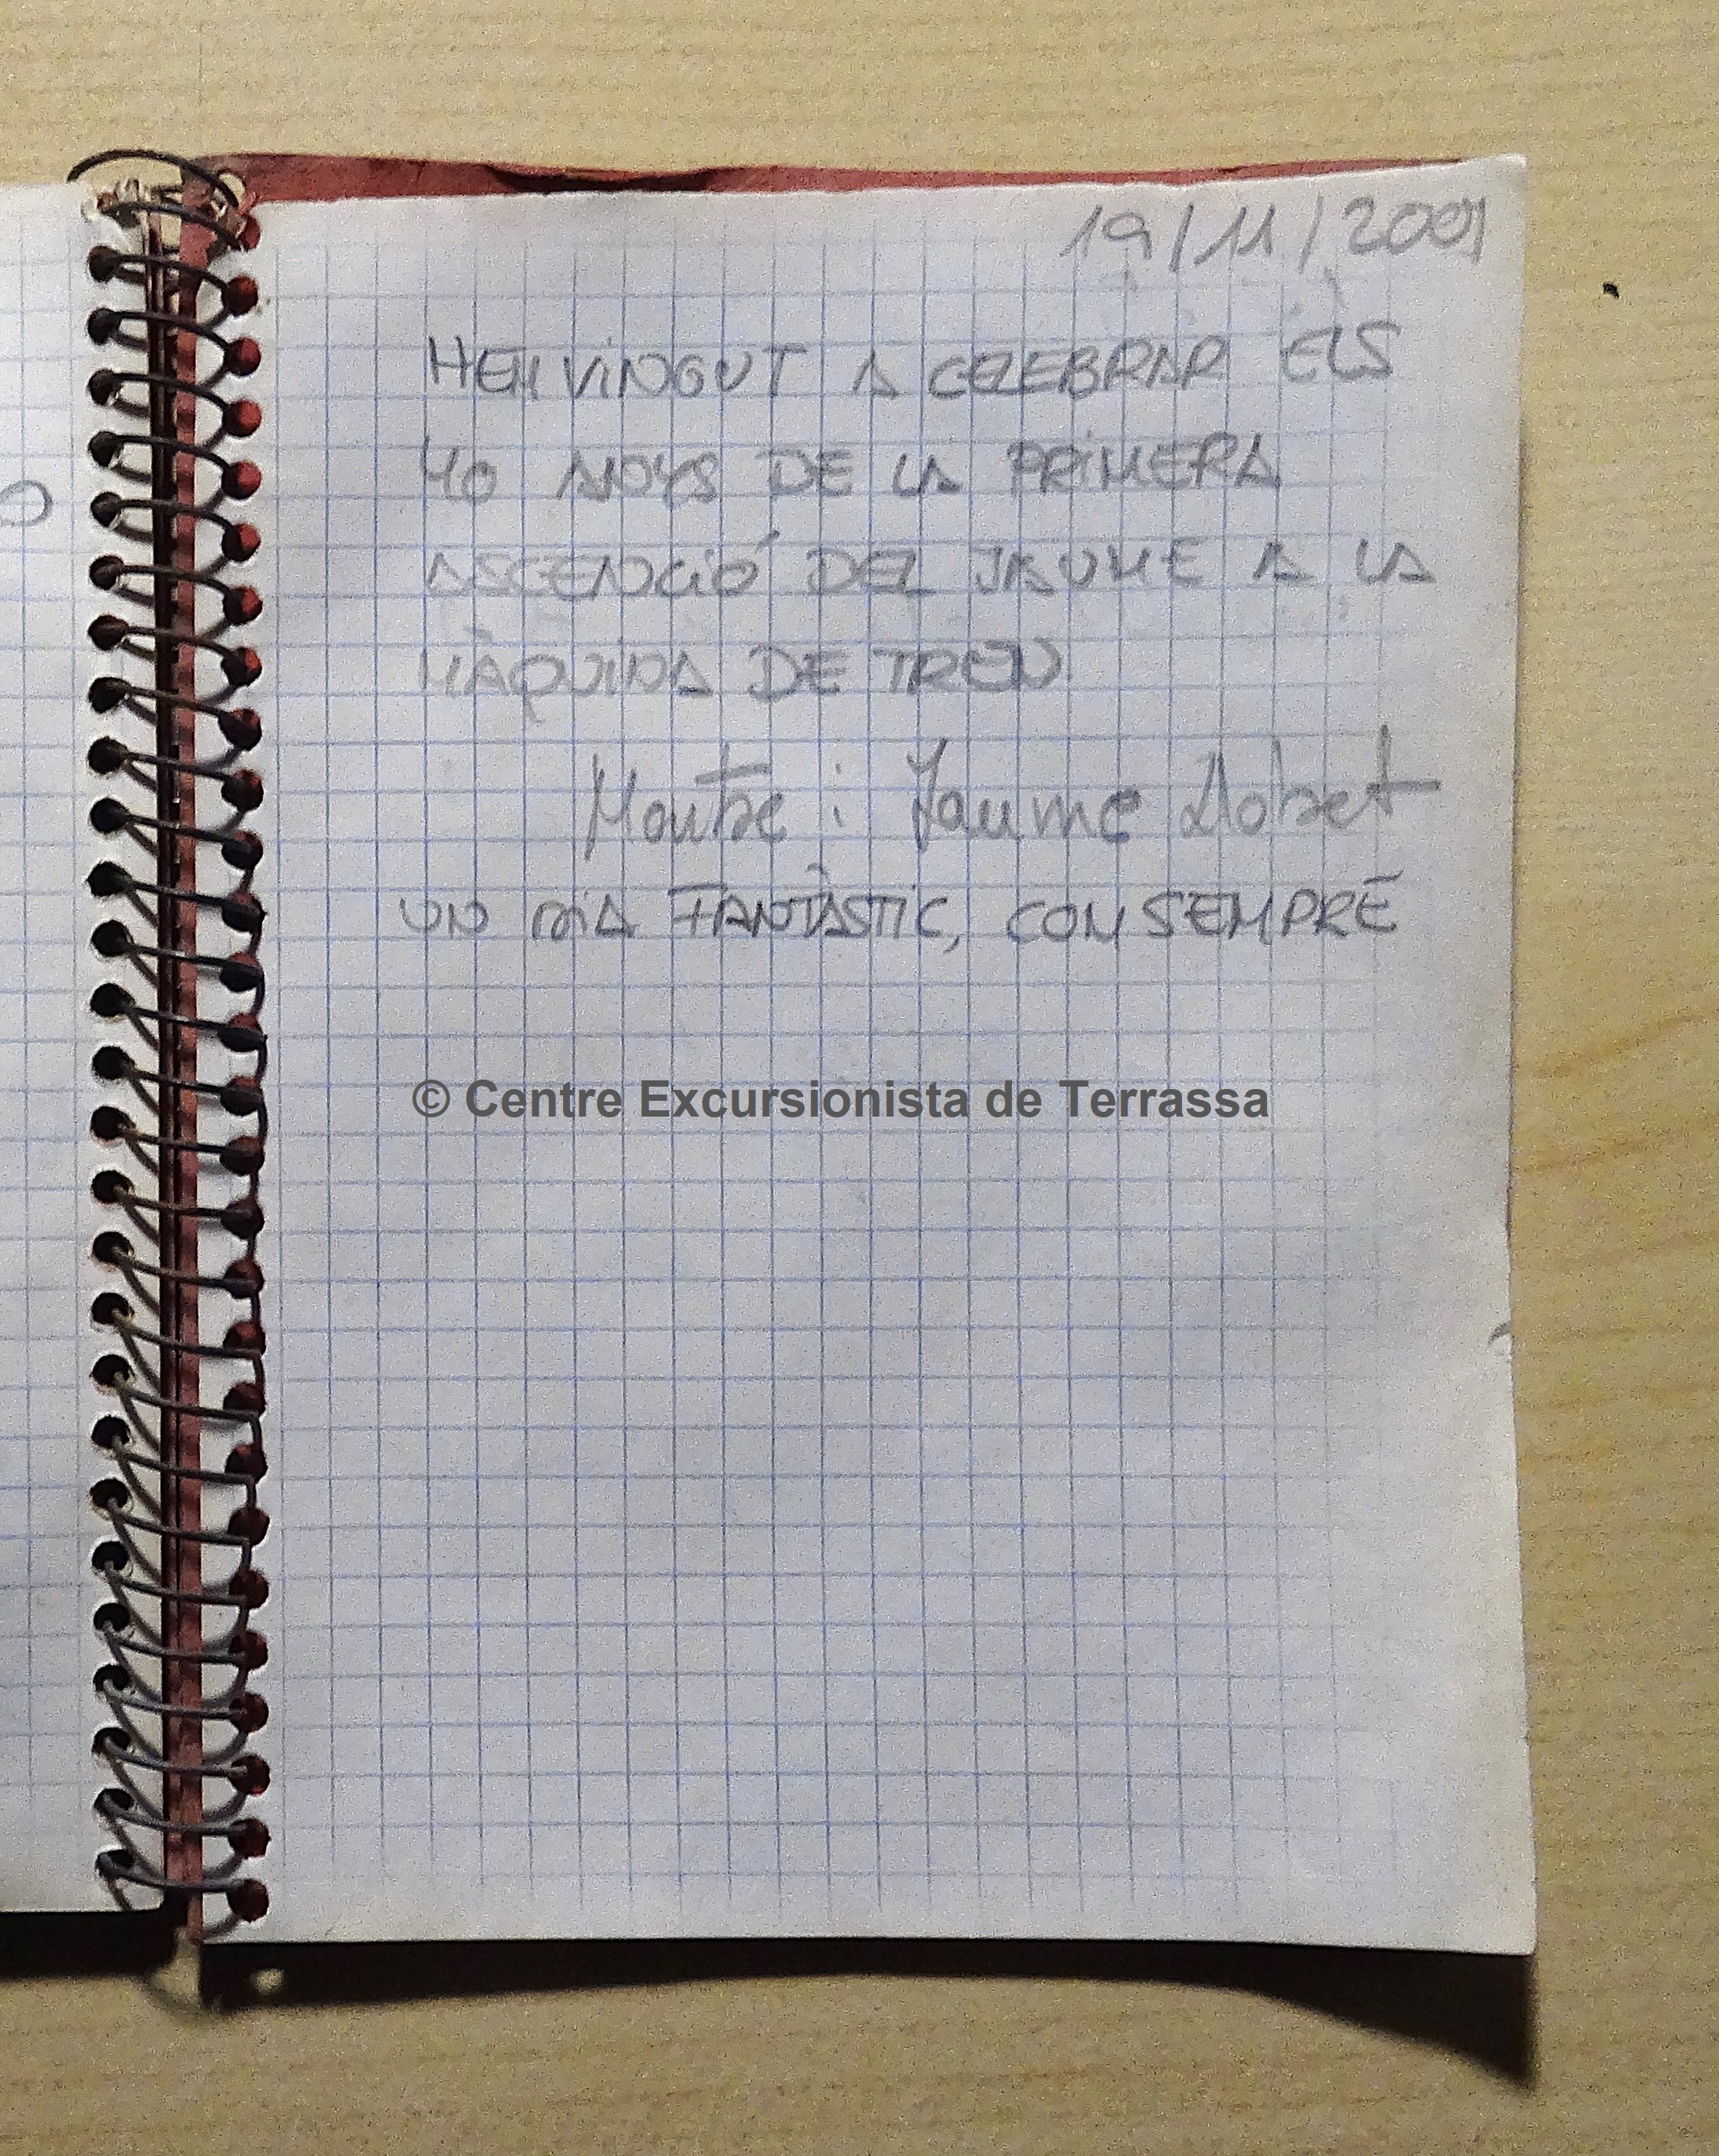 19/11/2001
HEM VINGUT A CELEBRAR ELS
40 ANYS DE LA PRIMERA
ASCENCIÓ DEL JAUME A LA
MÀQUINA DE TREN
Montse i Jaume Dobet
UN DIA FANTÀSTIC, COM SEMPRE
© Centre Excursionista de Terrassa